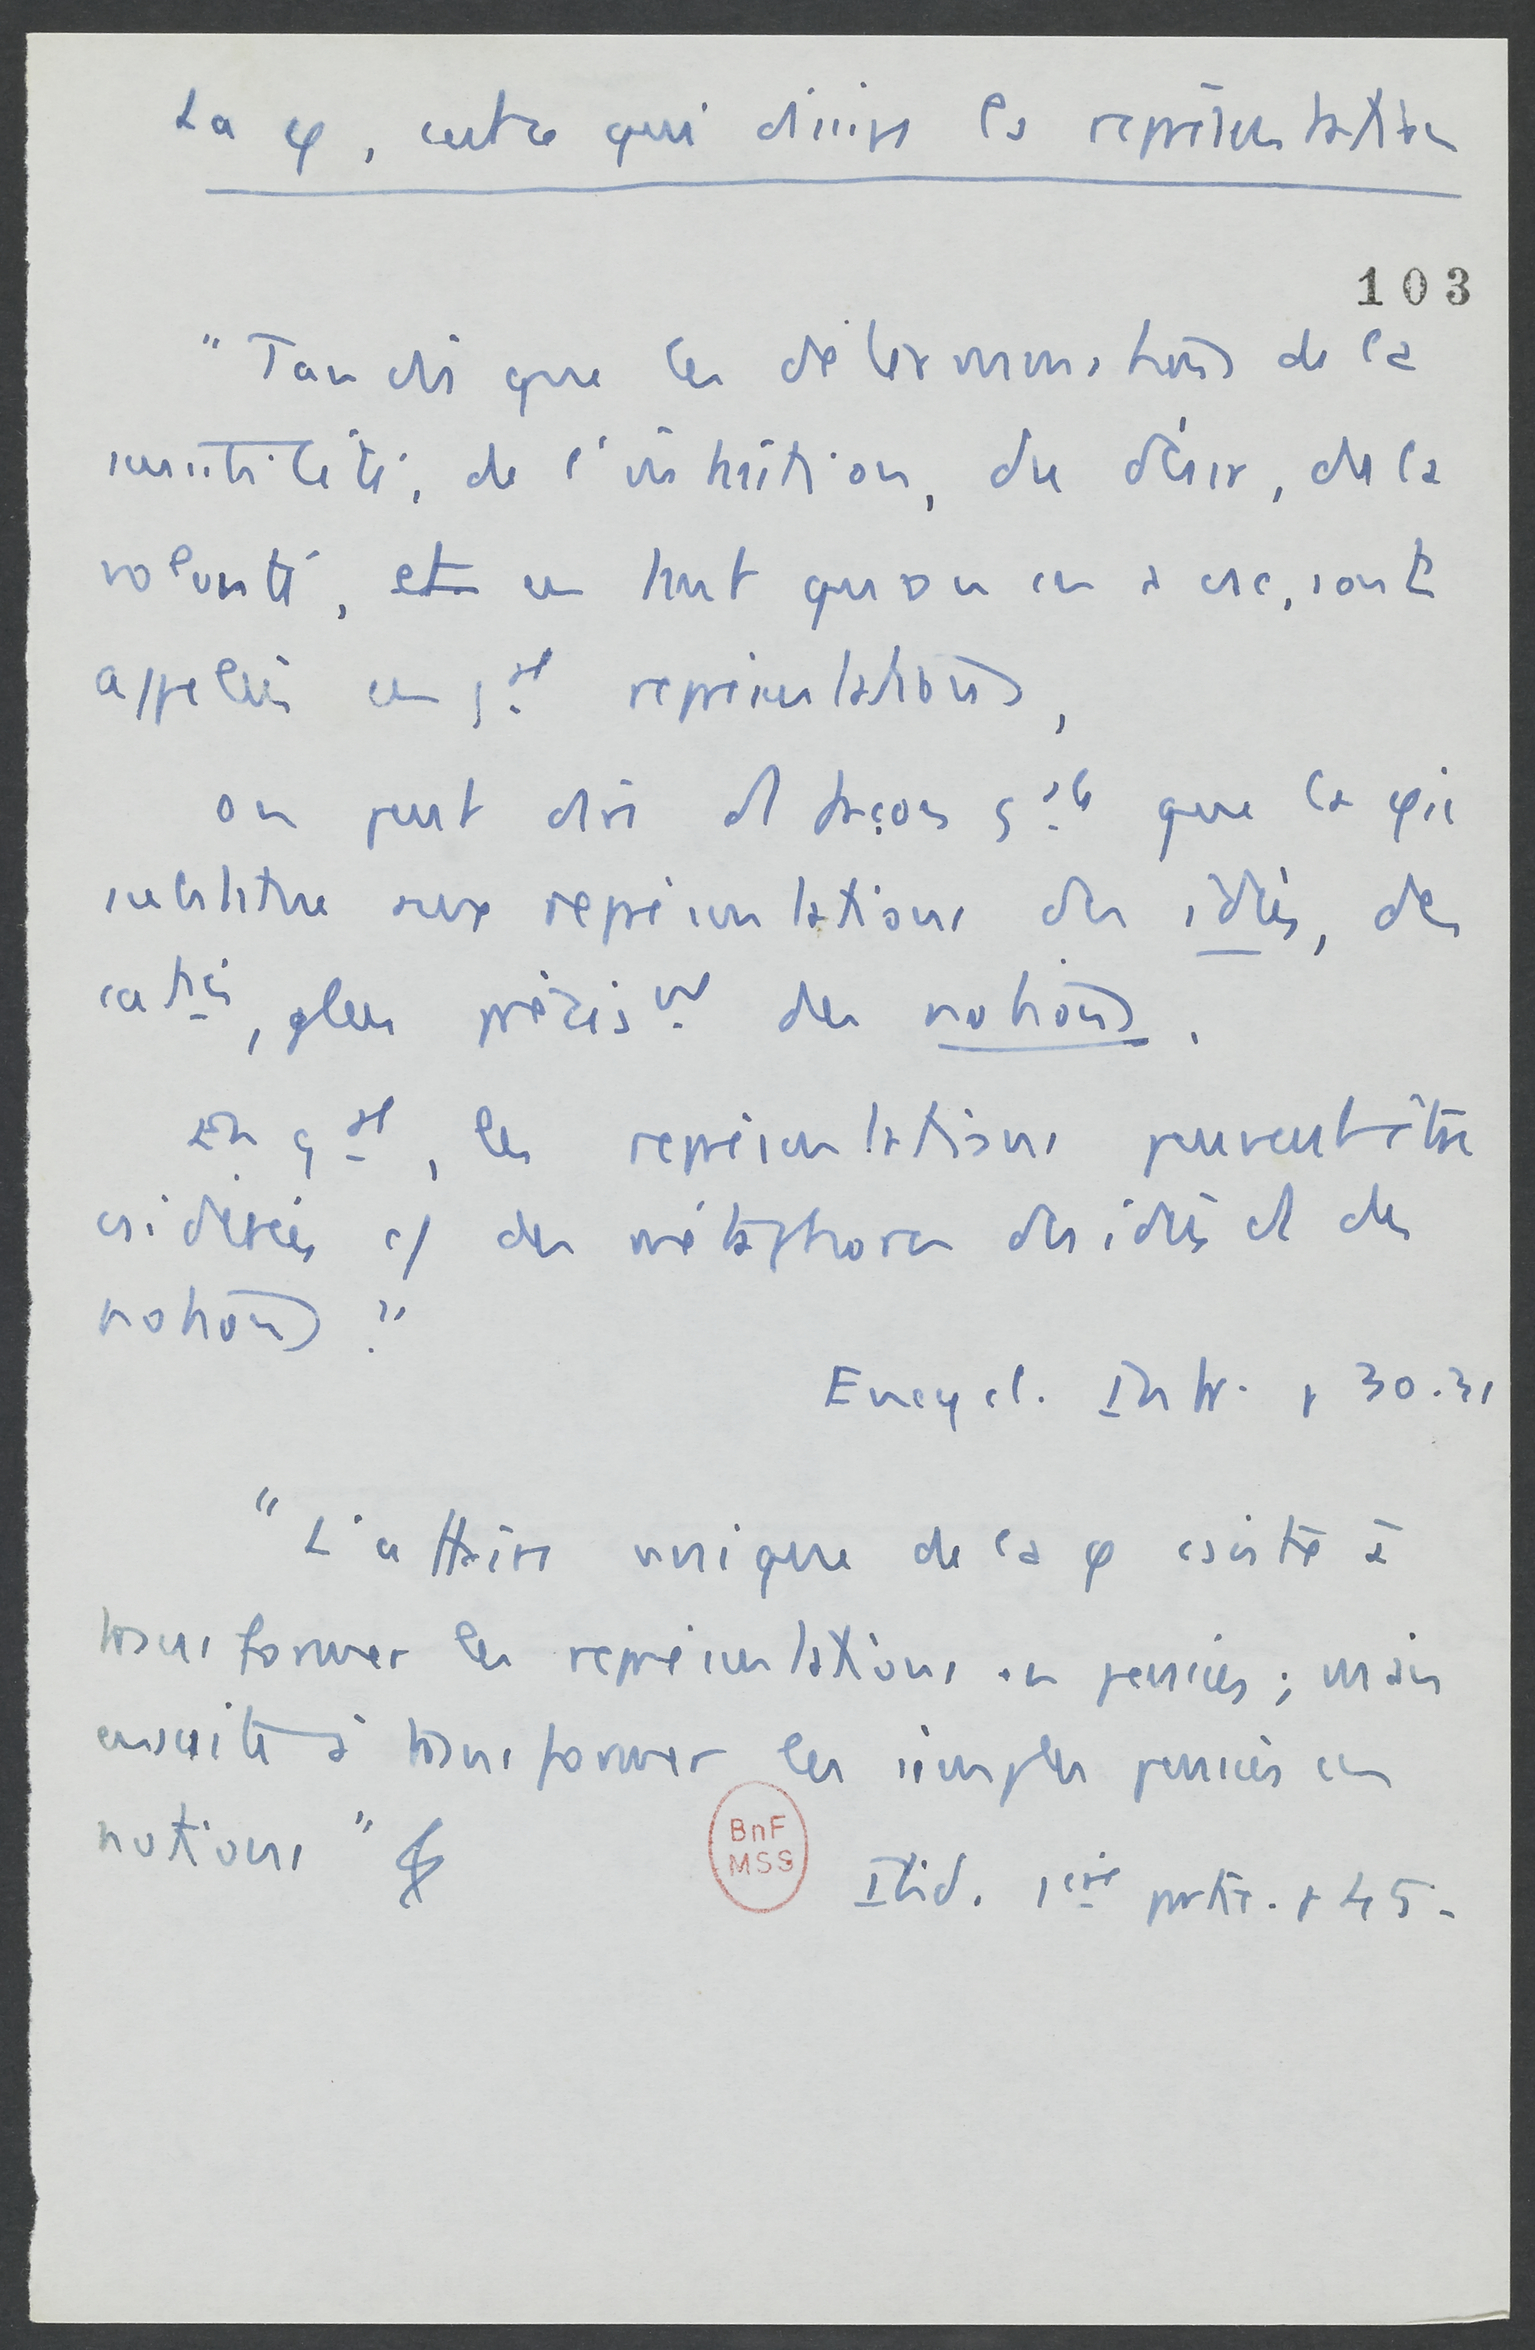 La φ, centre qui dissipe les représentations
103
"Tandis que les déterminations de la
sensibilité, de l'intuition, du désir, de la
volonté, et en tant qu'on en a csc, sont
appelées en gal représentations,
on peut dire de façon gale que la φie
substitue aux représentations des idées, des
caties, plus précismt des notions.
En gal, les représentations peuvent être
csidérées c/ des métaphores des idées et des
notions."
Encycl. Intr. p 30.31
"L'affaire unique de la φ csiste à
transformer les représentations en pensées ; mais
ensuite à transformer les simples pensées en
notions"
BnF
MSS
Ibid. 1ère partie. p 45.